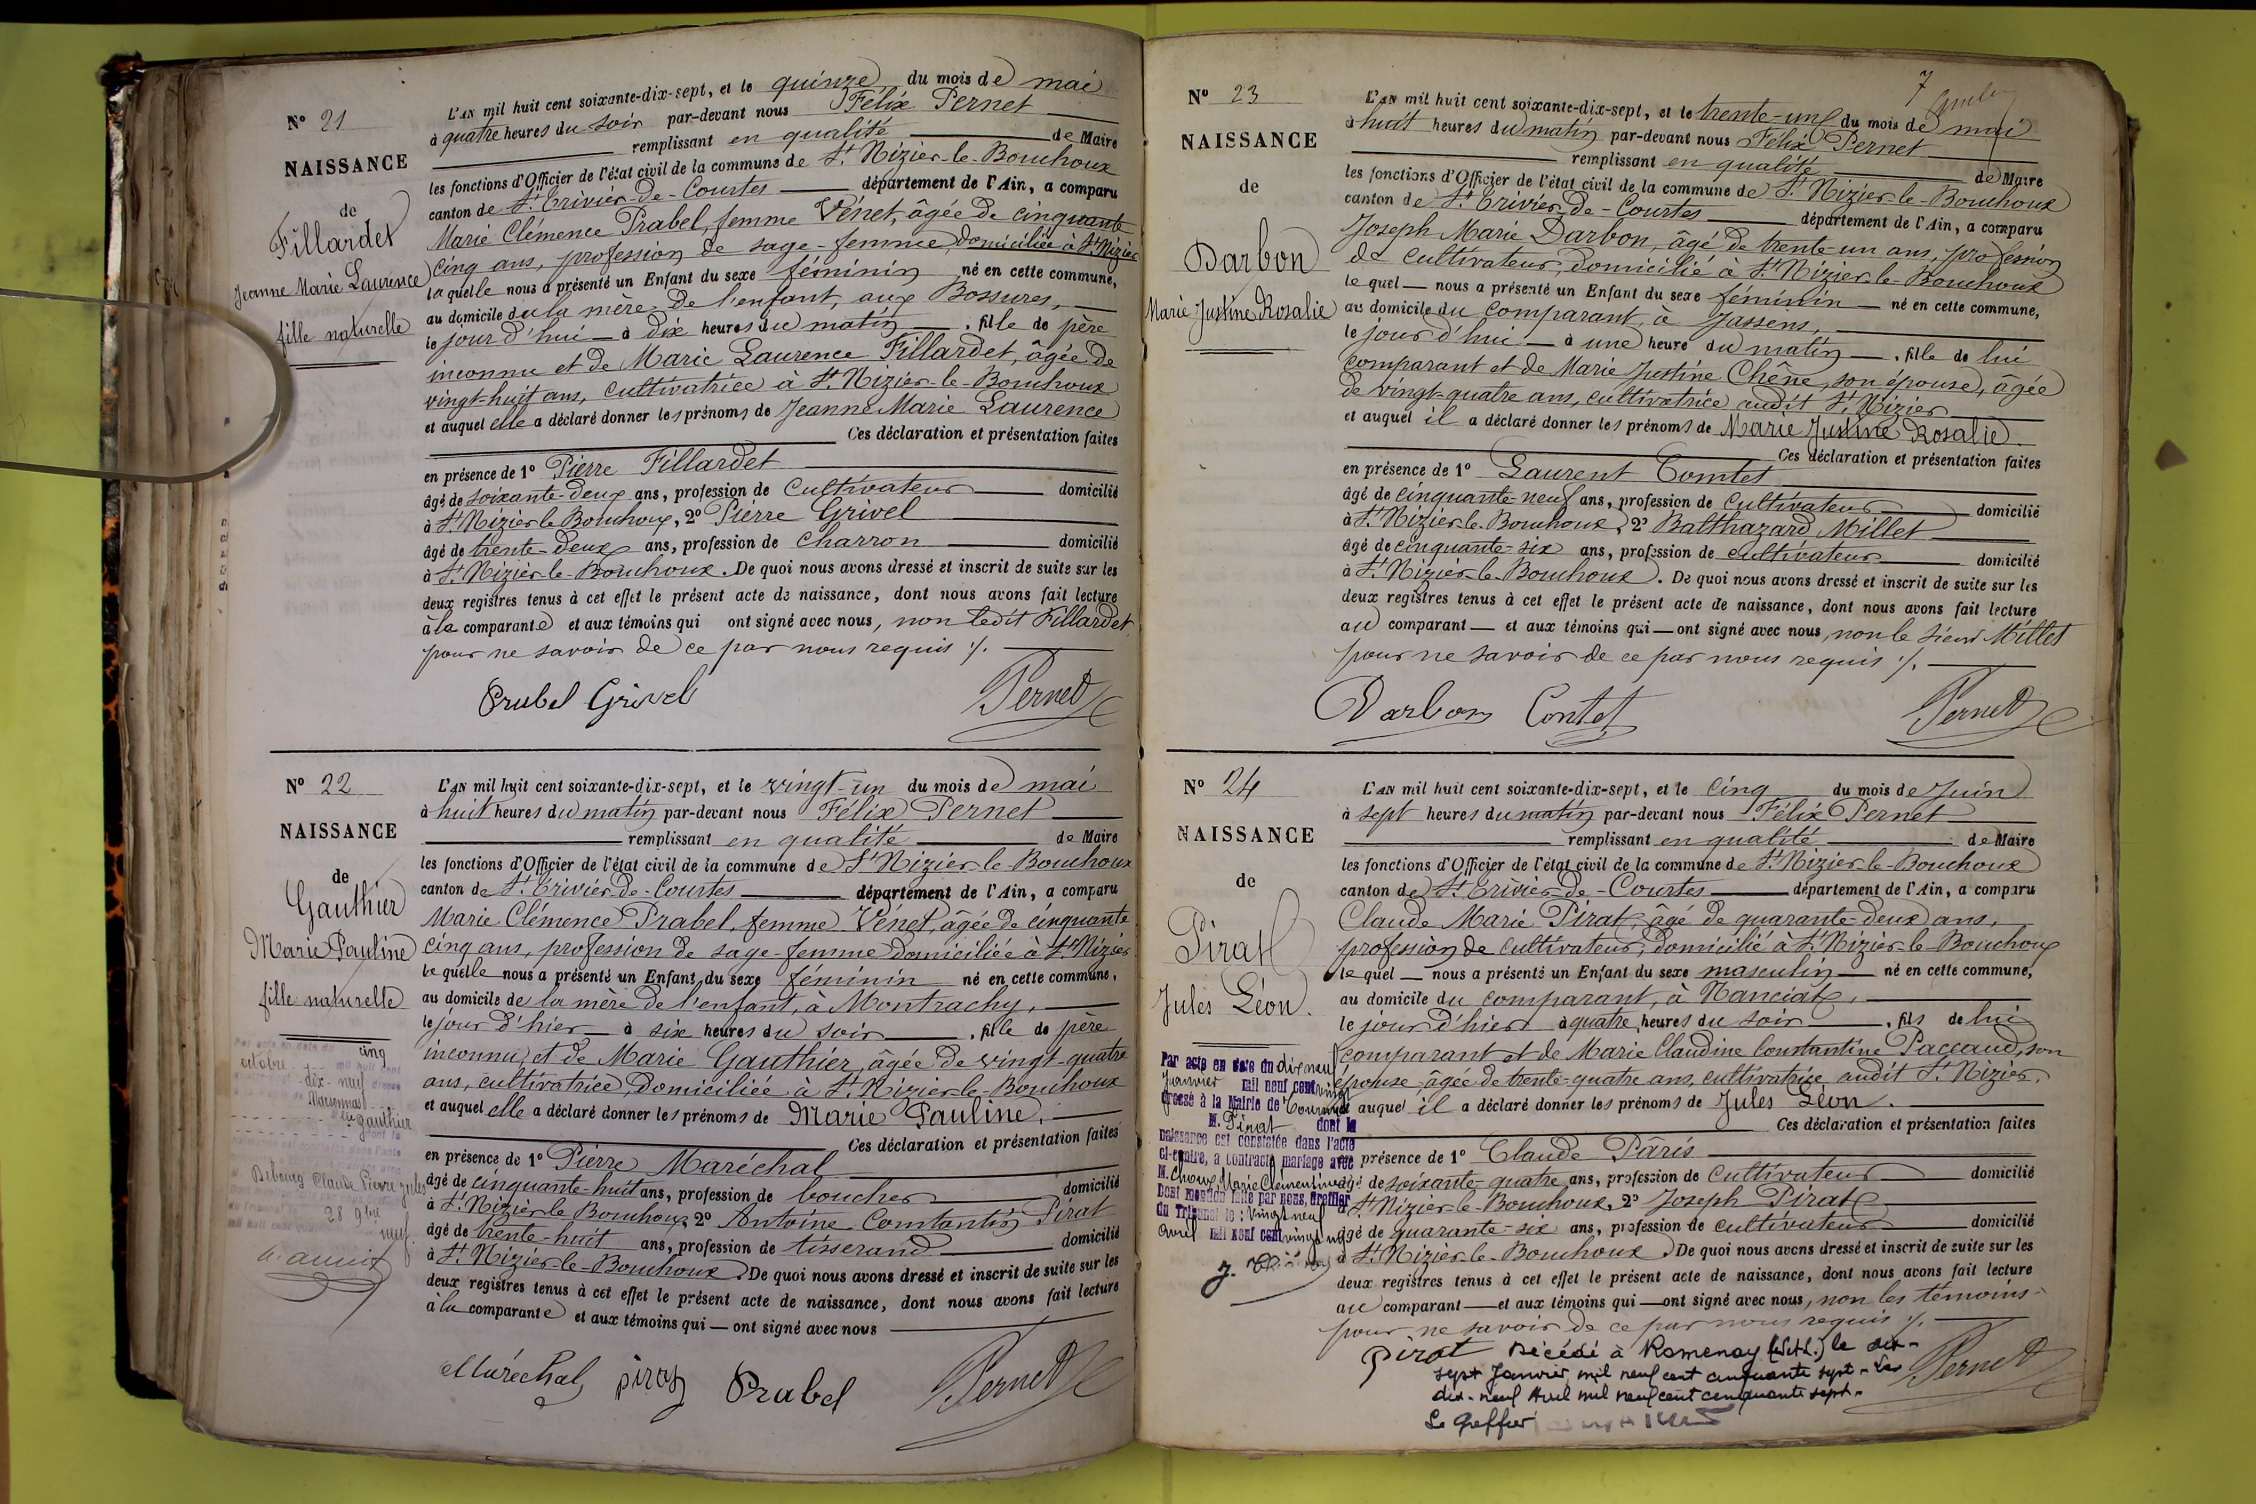 N° 21
NAISSANCE
de
Fillardet
Jeanne Marie Laurence
fille naturelle
L'AN mil huit cent soixante-dix-sept, et le quinze du mois de mai
à quatre heures du soir par-devant nous Félix Pernet
remplissant en qualité de Maire
les fonctions d'Officier de l'état civil de la commune de St Nizier-le-Bouchoux
canton de St Trivier-de-Courtes département de l'Ain, a comparu
Marie Clémence Prabel, femme Vénet, âgée de cinquante
cinq ans, profession de sage-femme, domiciliée à St Nizier
laquelle nous a présenté un Enfant du sexe féminin né en cette commune,
au domicile de la mère de l'enfant, aux Bossures,
le jour d'hui à dix heures du matin, fille de père
inconnu et de Marie Laurence Fillardet, âgée de
vingt-huit ans, cultivatrice à St Nizier-le-Bouchoux
et auquel elle a déclaré donner les prénoms de Jeanne Marie Laurence
Ces déclaration et présentation faites
en présence de 1° Pierre Fillardet
âgé de soixante-deux ans, profession de cultivateur domicilié
à St Nizier le Bouchoux, 2° Pierre Grivel
âgé de trente-deux ans, profession de charron domicilié
à St Nizier-le-Bouchoux. De quoi nous avons dressé et inscrit de suite sur les
deux registres tenus à cet effet le présent acte de naissance, dont nous avons fait lecture
à la comparante et aux témoins qui ont signé avec nous, non ledit Fillardet,
pour ne savoir de ce par nous requis ./.
Prabel Grivel Pernet
N° 22
NAISSANCE
de
Gauthier
Marie Pauline
fille naturelle
cinq
octobre
dix-neuf
Gauthier
Claude Pierre Jules
28 9bre
neuf
L'AN mil huit cent soixante-dix-sept, et le vingt-un du mois de mai
à huit heures du matin par-devant nous Félix Pernet
remplissant en qualité de Maire
les fonctions d'Officier de l'état civil de la commune de St Nizier-le-Bouchoux
canton de St Trivier-de-Courtes département de l'Ain, a comparu
Marie Clémence Prabel, femme Vénet, âgée de cinquante
cinq ans, profession de sage-femme domiciliée à St Nizier
laquelle nous a présenté un Enfant du sexe féminin né en cette commune,
au domicile de la mère de l'enfant, à Montrachy,
le jour d'hier à six heures du soir, fille de père
inconnu, et de Marie Gauthier, âgée de vingt-quatre
ans, cultivatrice, domiciliée à St Nizier-le-Bouchoux
et auquel elle a déclaré donner les prénoms de Marie Pauline.
Ces déclaration et présentation faites
en présence de 1° Pierre Maréchal
âgé de cinquante-huit ans, profession de boucher domicilié
à St Nizier le Bouchoux 2° Antoine Constantin Pirat
âgé de trente-huit ans, profession de tisserand domicilié
à St Nizier-le-Bouchoux. De quoi nous avons dressé et inscrit de suite sur les
deux registres tenus à cet effet le présent acte de naissance, dont nous avons fait lecture
à la comparante et aux témoins qui — ont signé avec nous
Maréchal pirat Prabel Pernet
7
N° 23
NAISSANCE
de
Darbon
Marie Justine Rosalie
L'AN mil huit cent soixante-dix-sept, et le trente-un du mois de mai
à huit heures du matin par-devant nous Félix Pernet
remplissant en qualité de Maire
les fonctions d'Officier de l'état civil de la commune de St Nizier-le-Bouchoux
canton de St Trivier-de-Courtes département de l'Ain, a comparu
Joseph Marie Darbon, âgé de trente-un ans, profession
de cultivateur, domicilié à St Nizier-le-Bouchoux
lequel — nous a présenté un Enfant du sexe féminin — né en cette commune,
au domicile du comparant, à Jassens,
le jour d'hui — à une heure du matin, fille de lui
comparant et de Marie Justine Chêne, son épouse, âgée
de vingt-quatre ans, cultivatrice audit St Nizier
et auquel il a déclaré donner les prénoms de Marie Justine Rosalie.
Ces déclaration et présentation faites
en présence de 1° Laurent Comtet
âgé de cinquante-neuf ans, profession de cultivateur domicilié
à St Nizier-le-Bouchoux, 2° Balthazard Millet
âgé de cinquante-six ans, profession de cultivateur domicilié
à St Nizier-le-Bouchoux. De quoi nous avons dressé et inscrit de suite sur les
deux registres tenus à cet effet le présent acte de naissance, dont nous avons fait lecture
au comparant — et aux témoins qui — ont signé avec nous, non le sieur Millet
pour ne savoir de ce par nous requis ./.
Darbon Contet Pernet
N° 24
NAISSANCE
de
Pirat
Jules Léon.
Par acte en date du dix neuf
Janvier mil neuf cent vingt
dressé à la Mairie de
M. Pirat dont la
naissance est constatée dans l'acte
ci-contre, a contracté mariage avec
M. Choux Marie Clémentine
Dont mention faite par nous, Greffier
du Tribunal le : vingt neuf
avril mil neuf cent vingt
L'AN mil huit cent soixante-dix-sept, et le cinq du mois de Juin
à sept heures du matin par-devant nous Félix Pernet
remplissant en qualité de Maire
les fonctions d'Officier de l'état civil de la commune de St Nizier-le-Bouchoux
canton de St Trivier-de-Courtes département de l'Ain, a comparu
Claude Marie Pirat, âgé de quarante-deux ans,
profession de cultivateur, domicilié à St Nizier-le-Bouchoux
lequel — nous a présenté un Enfant du sexe masculin — né en cette commune,
au domicile du comparant, à Nanciat,
le jour d'hier à quatre heures du soir, fils de lui
comparant et de Marie Claudine Constantine Paccaud, son
épouse âgée de trente-quatre ans, cultivatrice audit St Nizier,
et auquel il a déclaré donner les prénoms de Jules Léon.
Ces déclaration et présentation faites
en présence de 1° Claude Pâris
âgé de soixante-quatre ans, profession de cultivateur domicilié
à St Nizier-le-Bouchoux, 2° Joseph Pirat
âgé de quarante-six ans, profession de cultivateur domicilié
à St Nizier-le-Bouchoux. De quoi nous avons dressé et inscrit de suite sur les
deux registres tenus à cet effet le présent acte de naissance, dont nous avons fait lecture
au comparant — et aux témoins qui — ont signé avec nous, non les témoins
pour ne savoir de ce par nous requis ./.
Pirat Pernet
Décédé à Romenay (S.&L.) le dix-
sept Janvier mil neuf cent cinquante sept. Le
dix-neuf Avril mil neuf cent cinquante sept.
Le Greffier